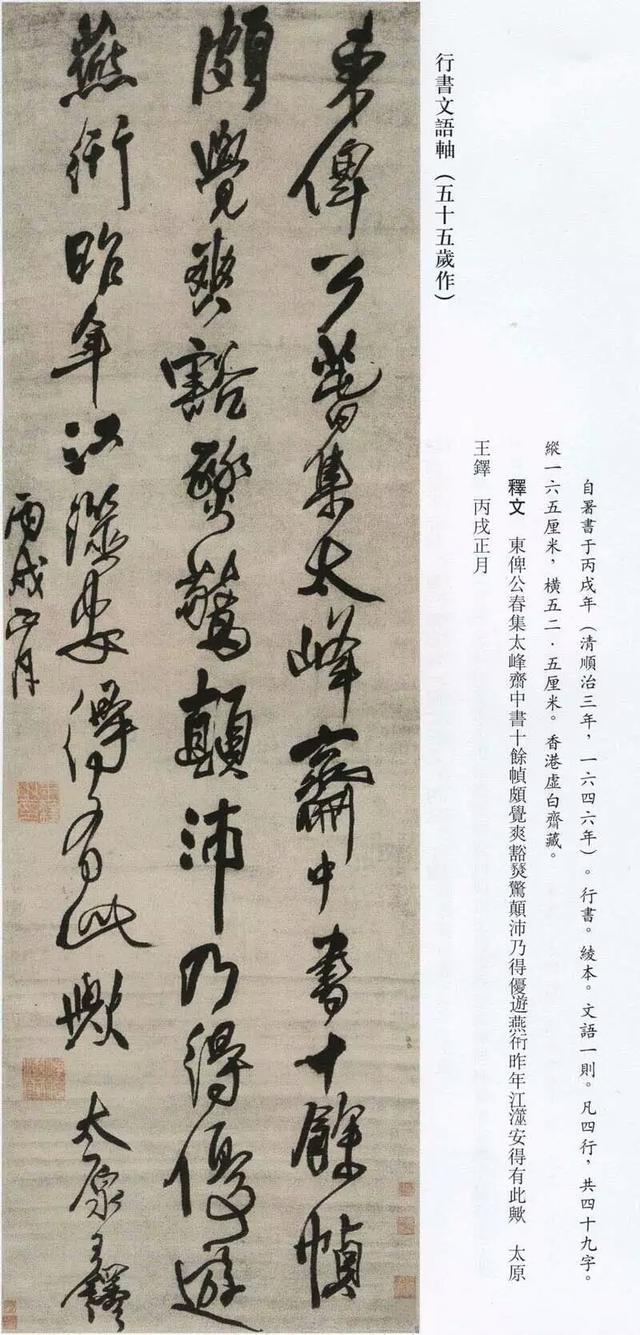 行書文語軸（五十五歲作）
自署書于丙戌年（清順治三年，一六四六年）。行書。綾本。文語一則。凡四行，共四十九字。
縱一六五厘米，橫五二．五厘米。香港虛白齊藏。
釋文　東俾公春集太峰齋中書十餘幀頗覺爽豁燹驚顛沛乃得優遊燕衎昨年江澨安得有此歟　太原
王鐸　丙戌正月
東俾公春集太峰齋中書十餘幀
頗覺爽豁燹驚顛沛乃得優遊
燕衎昨年江澨安得有此歟　太原王鐸
丙戌正月